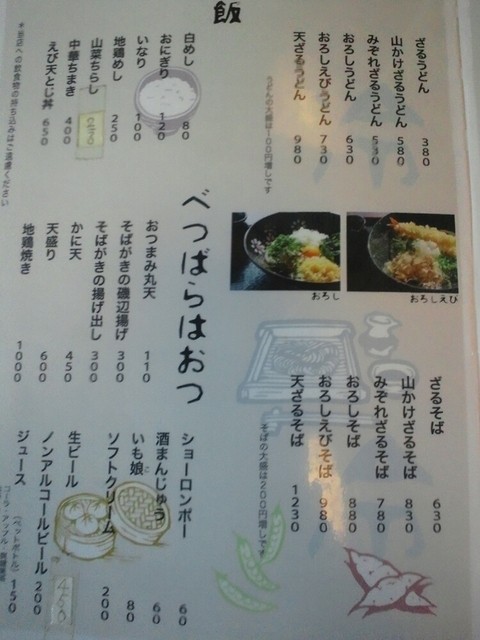 ざるうどん 380
山かけざるうどん 580
みぞれざるうどん 530
おろしうどん 630
おろしえびうどん 730
天ざるうどん 980
うどんの大盛は100円増しです
おろし
おろしえび
ざるそば 630
山かけざるそば 830
みぞれざるそば 780
おろしそば 880
おろしえびそば 980
天ざるそば 1230
そばの大盛は200円増しです
飯
白めし 80
おにぎり 120
いなり 100
地鶏めし 250
山菜ちらし 270
中華ちまき 400
えび天とじ丼 650
＊当店への飲食物の持ち込みはご遠慮ください
べつばらはおつ
おつまみ丸天 110
そばがきの磯辺揚げ 300
そばがきの揚げ出し 300
かに天 450
天盛り 600
地鶏焼き 1000
ショーロンポー 60
酒まんじゅう 60
いも娘 80
ソフトクリーム 200
生ビール 460
ノンアルコールビール 200
ジュース (ペットボトル) 150